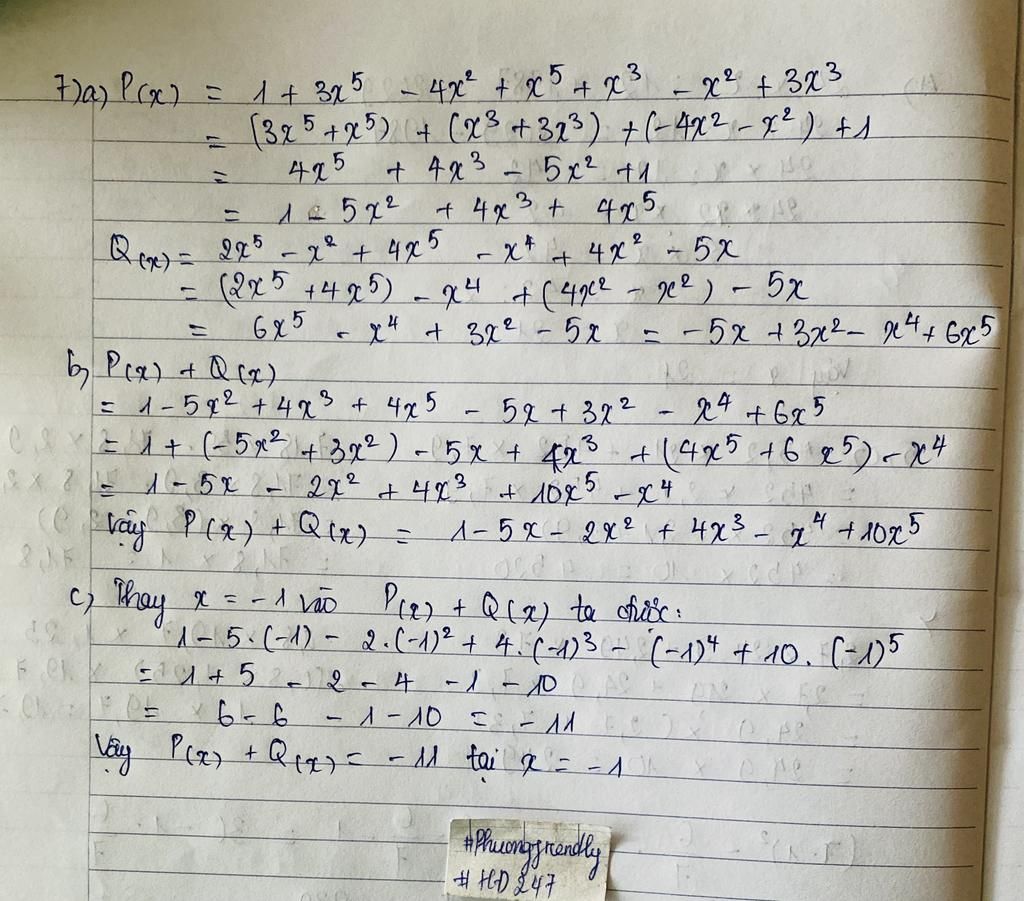 7)a) P(x) = 1 + 3x⁵ - 4x² + x⁵ + x³ - x² + 3x³
= (3x⁵ + x⁵) + (x³ + 3x³) + (-4x² - x²) + 1
= 4x⁵ + 4x³ - 5x² + 1
= 1 - 5x² + 4x³ + 4x⁵
Q(x) = 2x⁵ - x² + 4x⁵ - x⁴ + 4x² - 5x
= (2x⁵ + 4x⁵) - x⁴ + (4x² - x²) - 5x
= 6x⁵ - x⁴ + 3x² - 5x = -5x + 3x² - x⁴ + 6x⁵
b, P(x) + Q(x)
= 1 - 5x² + 4x³ + 4x⁵ - 5x + 3x² - x⁴ + 6x⁵
= 1 + (-5x² + 3x²) - 5x + 4x³ + (4x⁵ + 6x⁵) - x⁴
= 1 - 5x - 2x² + 4x³ + 10x⁵ - x⁴
Vậy P(x) + Q(x) = 1 - 5x - 2x² + 4x³ - x⁴ + 10x⁵
c, Thay x = -1 vào P(x) + Q(x) ta được:
1 - 5.(-1) - 2.(-1)² + 4.(-1)³ - (-1)⁴ + 10.(-1)⁵
= 1 + 5 - 2 - 4 - 1 - 10
= 6 - 6 - 1 - 10 = -11
Vậy P(x) + Q(x) = -11 tại x = -1
#Phuongfriendly
#HD247